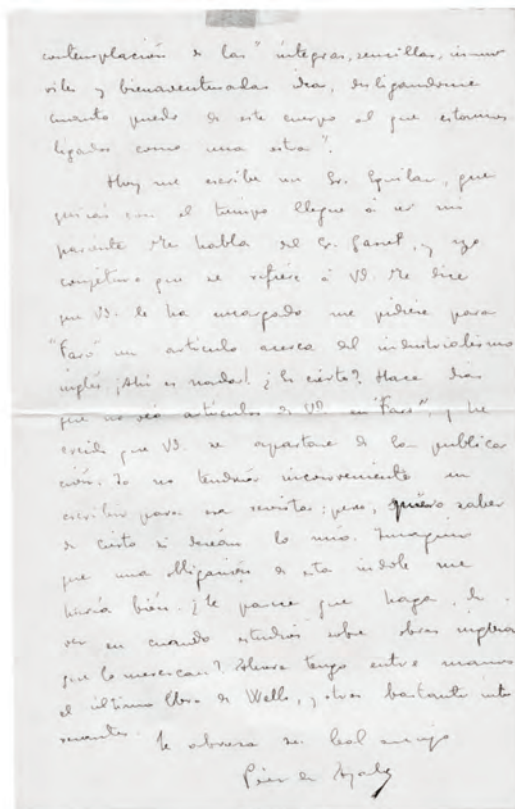 contemplación de las "íntegras, sencillas, inmó
viles y bienaventuradas ideas, desligandome
cuanto puedo de este cuerpo al que estamos
ligados como una ostra".
Hoy me escribe un Sr. Eguilaz, que
quizás con el tiempo llegue á ser mi
pariente. Me habla del Sr. Gaset, y yo
conjeturo que se refiere á Vd. Me dice
que Vd. le ha encargado me pidiese para
"Faro" un artículo acerca del industrialismo
inglés. ¡Ahí es nada! ¿Es cierto? Hace días
que no veo artículos de Vd. en "Faro", y he
creido que Vd. se apartase de la publica
ción. Yo no tendría inconveniente en
escribir para esa revista; pero, quiero saber
de cierto si desean lo mío. Imagino
que una obligación de esta indole me
haría bien. ¿Le parece que haga, de
vez en cuando estudios sobre obras inglesas
que lo merezcan? Ahora tengo entre manos
el último libro de Wells, y otros bastante inte
resantes. Le abraza su leal amigo
Pérez de Ayala